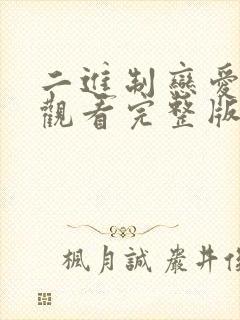 二進制戀愛
觀看完整版
楓月誠嚴井俊